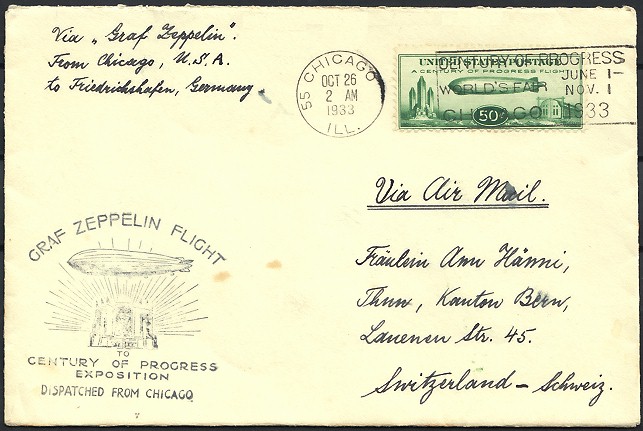 Via „Graf Zeppelin".
From Chicago, U.S.A.
to Friedrichshafen, Germany.
55 CHICAGO
OCT 26
2 AM
1933
ILL.
UNITED STATES POSTAGE
A CENTURY OF PROGRESS FLIGHT
50¢
CENTURY OF PROGRESS
WORLD'S FAIR
JUNE 1-
NOV. 1
CHICAGO 1933
Via Air Mail.
Fräulein Ann Hänni,
Thun, Kanton Bern,
Lauenen Str. 45.
Switzerland - Schweiz.
GRAF ZEPPELIN FLIGHT
TO
CENTURY OF PROGRESS
EXPOSITION
DISPATCHED FROM CHICAGO